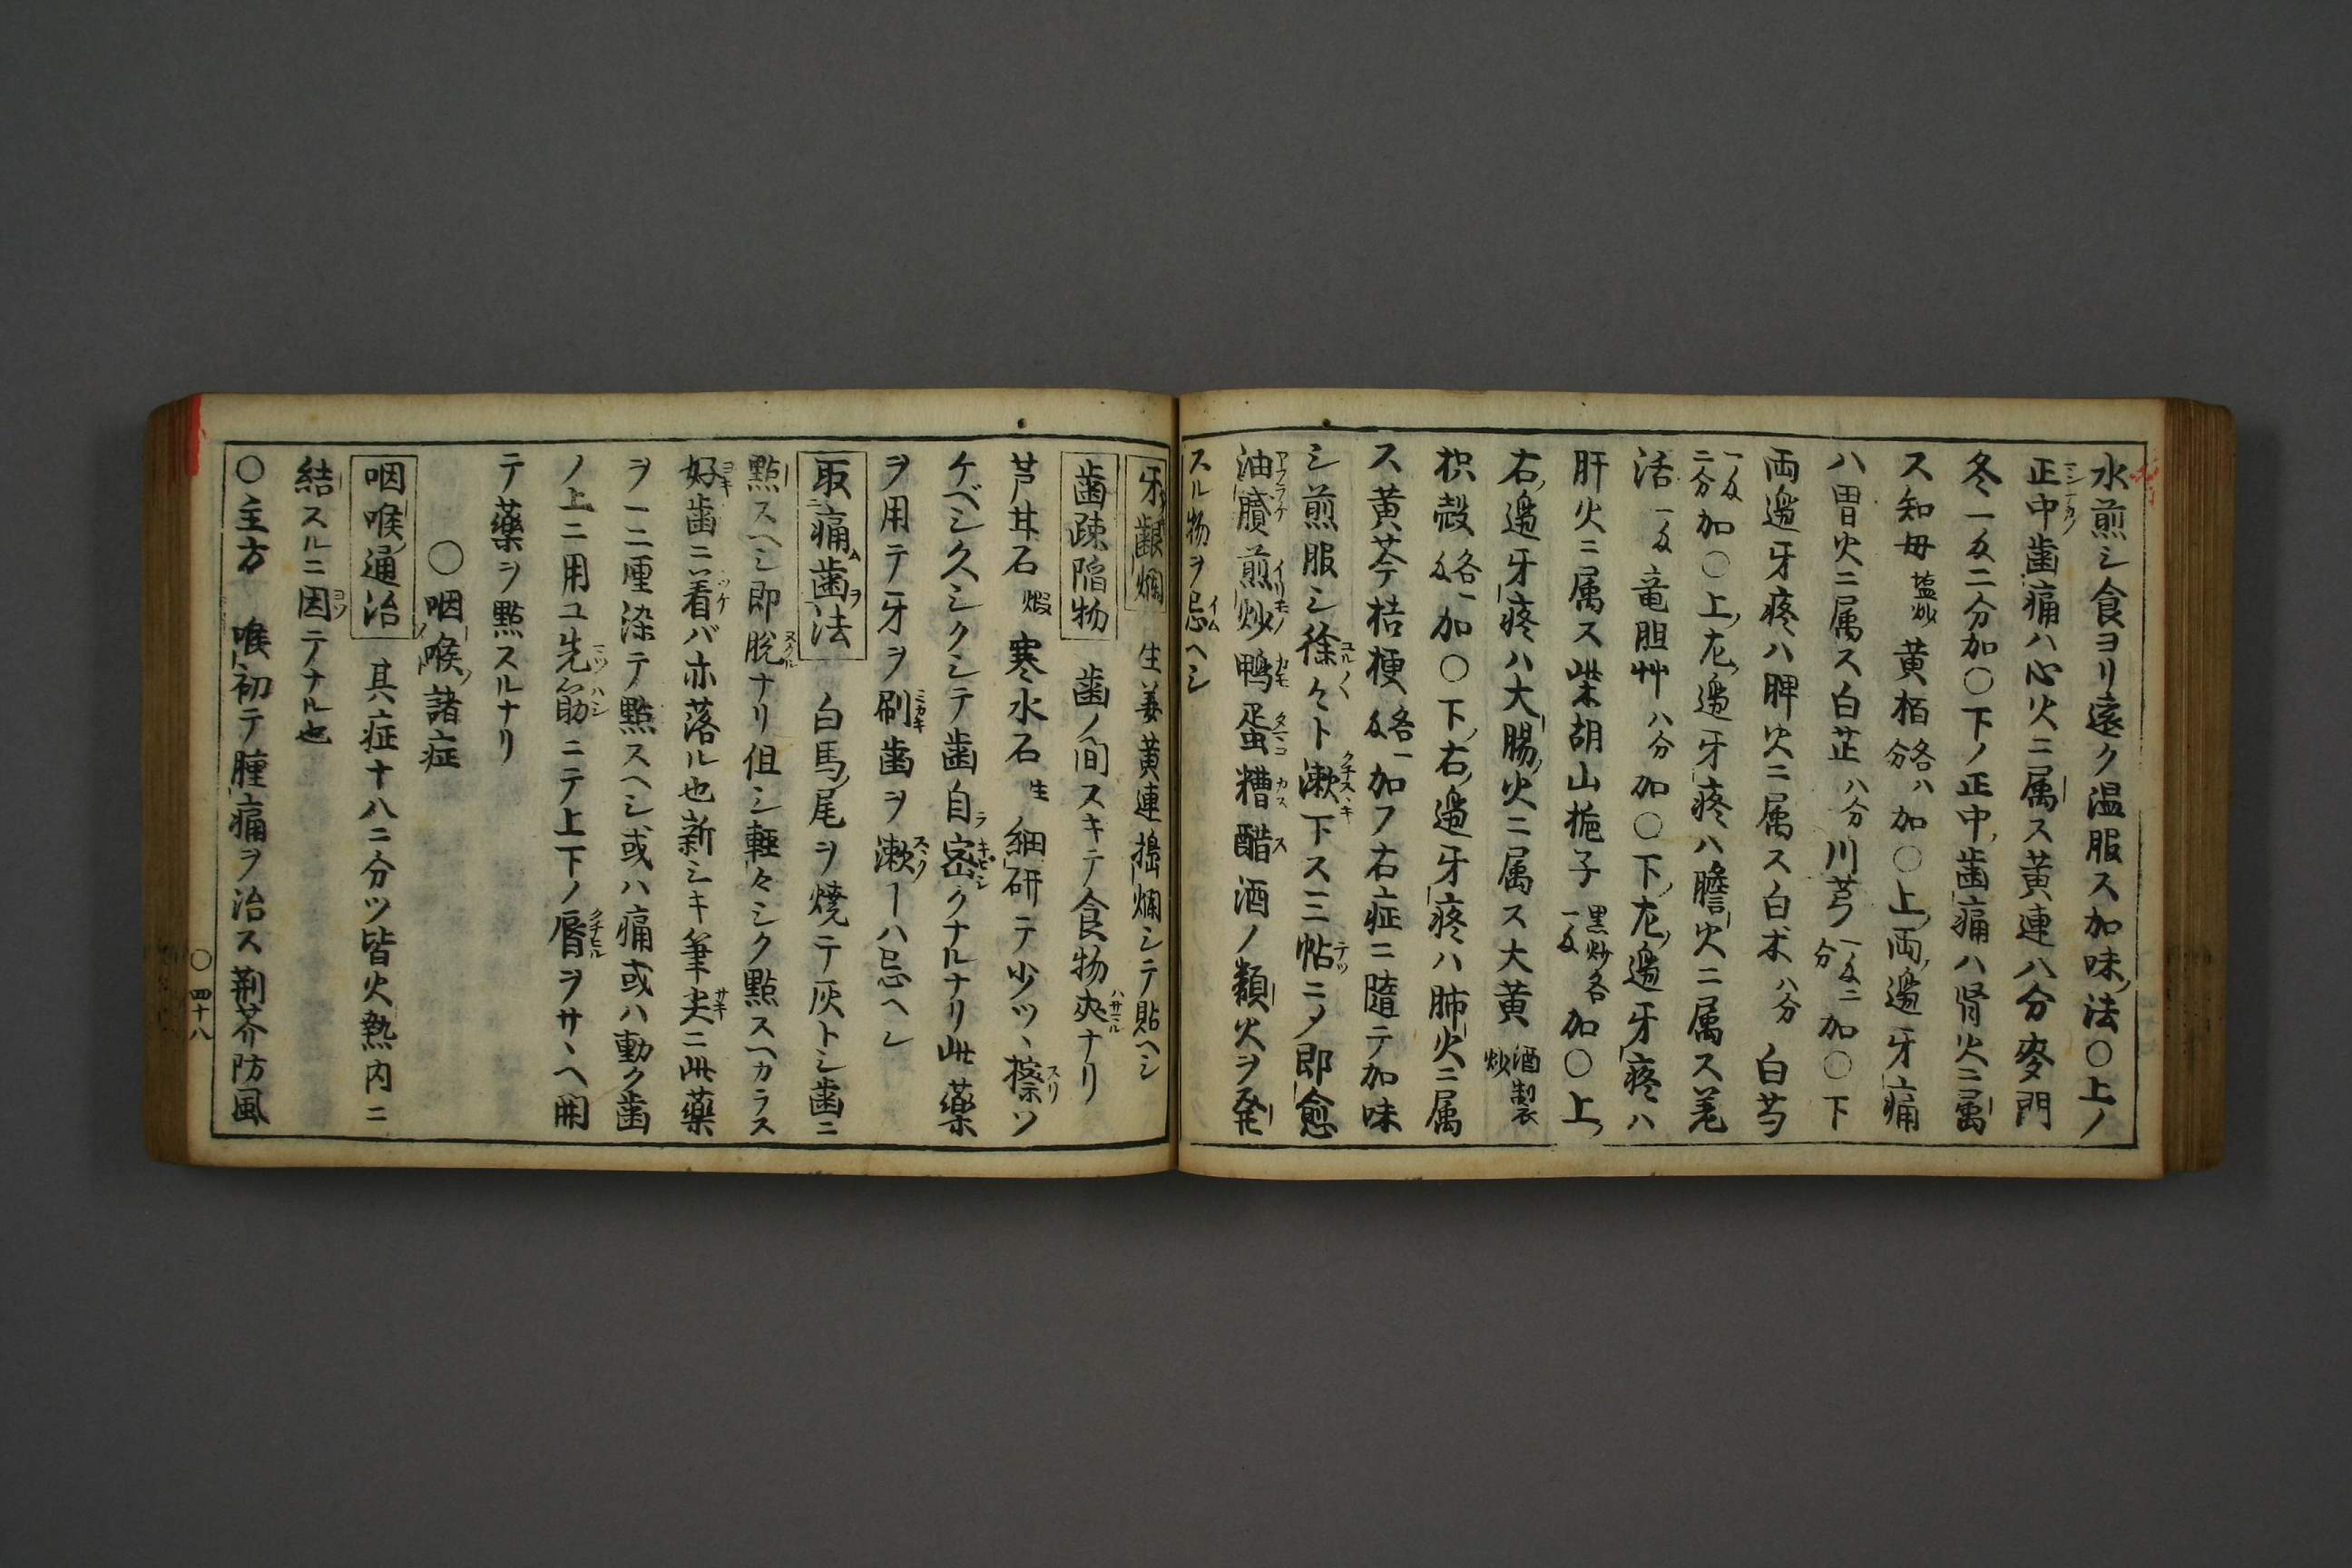 水煎シ食ヨリ遠ク温服ス加味ノ法〇上ノ
正中歯痛ハ心火ニ属ス黄連八分麥門
冬一匁二分加〇下ノ正中ノ歯痛ハ肾火ニ属
ス知母塩炒黄栢各八分加〇上ノ両ノ邉牙痛
ハ胃火ニ属ス白芷八分川芎一匁二分加〇下
両邉牙疼ハ脾火ニ属ス白朮八分白芍
一匁二分加〇上ノ左ノ邉牙疼ハ膽火ニ属ス羌
活一匁竜胆艸八分加〇下ノ左ノ邉牙疼ハ
肝火ニ属ス柴胡山梔子黒炒各一匁加〇上ノ
右ノ邉牙疼ハ大腸ノ火ニ属ス大黄酒製炒
枳殻各一匁加〇下ノ右ノ邉牙疼ハ肺火ニ属
ス黄芩桔梗各一匁加フ右症ニ隨テ加味
シ煎服シ徐々ト漱下ス三帖ニメ即愈
油膩煎炒鴨蛋糟醋酒ノ類火ヲ発
スル物ヲ忌ヘシ
牙齦爛 生姜黄連搗爛シテ貼ヘシ
歯疎陷物 歯ノ間スキテ食物夾ナリ
芦甘石煅寒水石生細研テ少ツヽ擦ツ
ケベシ久シクシテ歯自密クナルナリ此薬
ヲ用テ牙ヲ刷歯ヲ漱ーハ忌ヘシ
取痛歯法 白馬ノ尾ヲ焼テ灰トシ歯ニ
點スヘシ即脱ナリ但シ軽々シク點スヘカラス
好歯ニ看バ亦落ル也新シキ筆尖ニ此薬
ヲ一二厘染テ點スヘシ或ハ痛或ハ動ク歯
ノ上ニ用ユ先筯ニテ上下ノ唇ヲサヽヘ開
テ薬ヲ點スルナリ
〇咽喉ノ諸症
咽喉通治 其症十八ニ分ツ皆火熱内ニ
結スルニ因テナル也
〇主方 喉初テ腫痛ヲ治ス荆芥防風
〇四十八